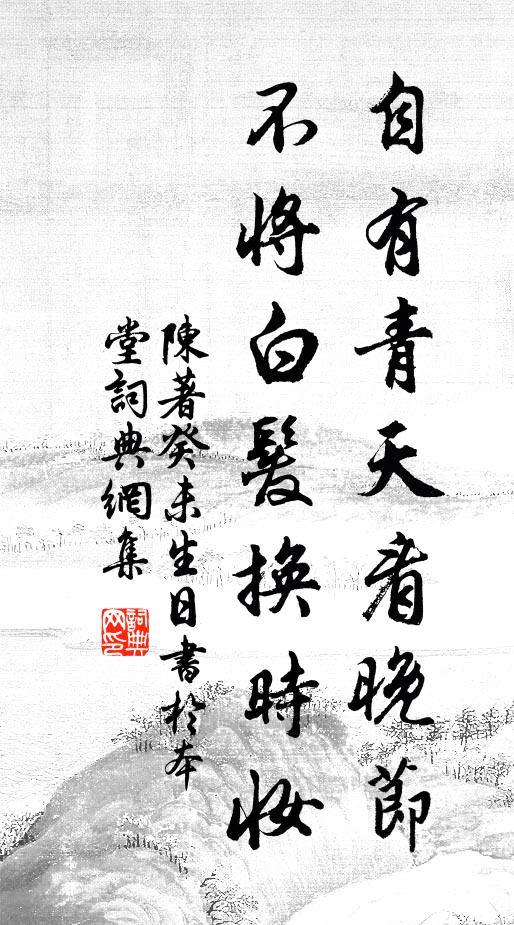 自有青天看晚節
不將白髮換時妝
陳著癸未生日書於本
堂詞典網集
詞典网印